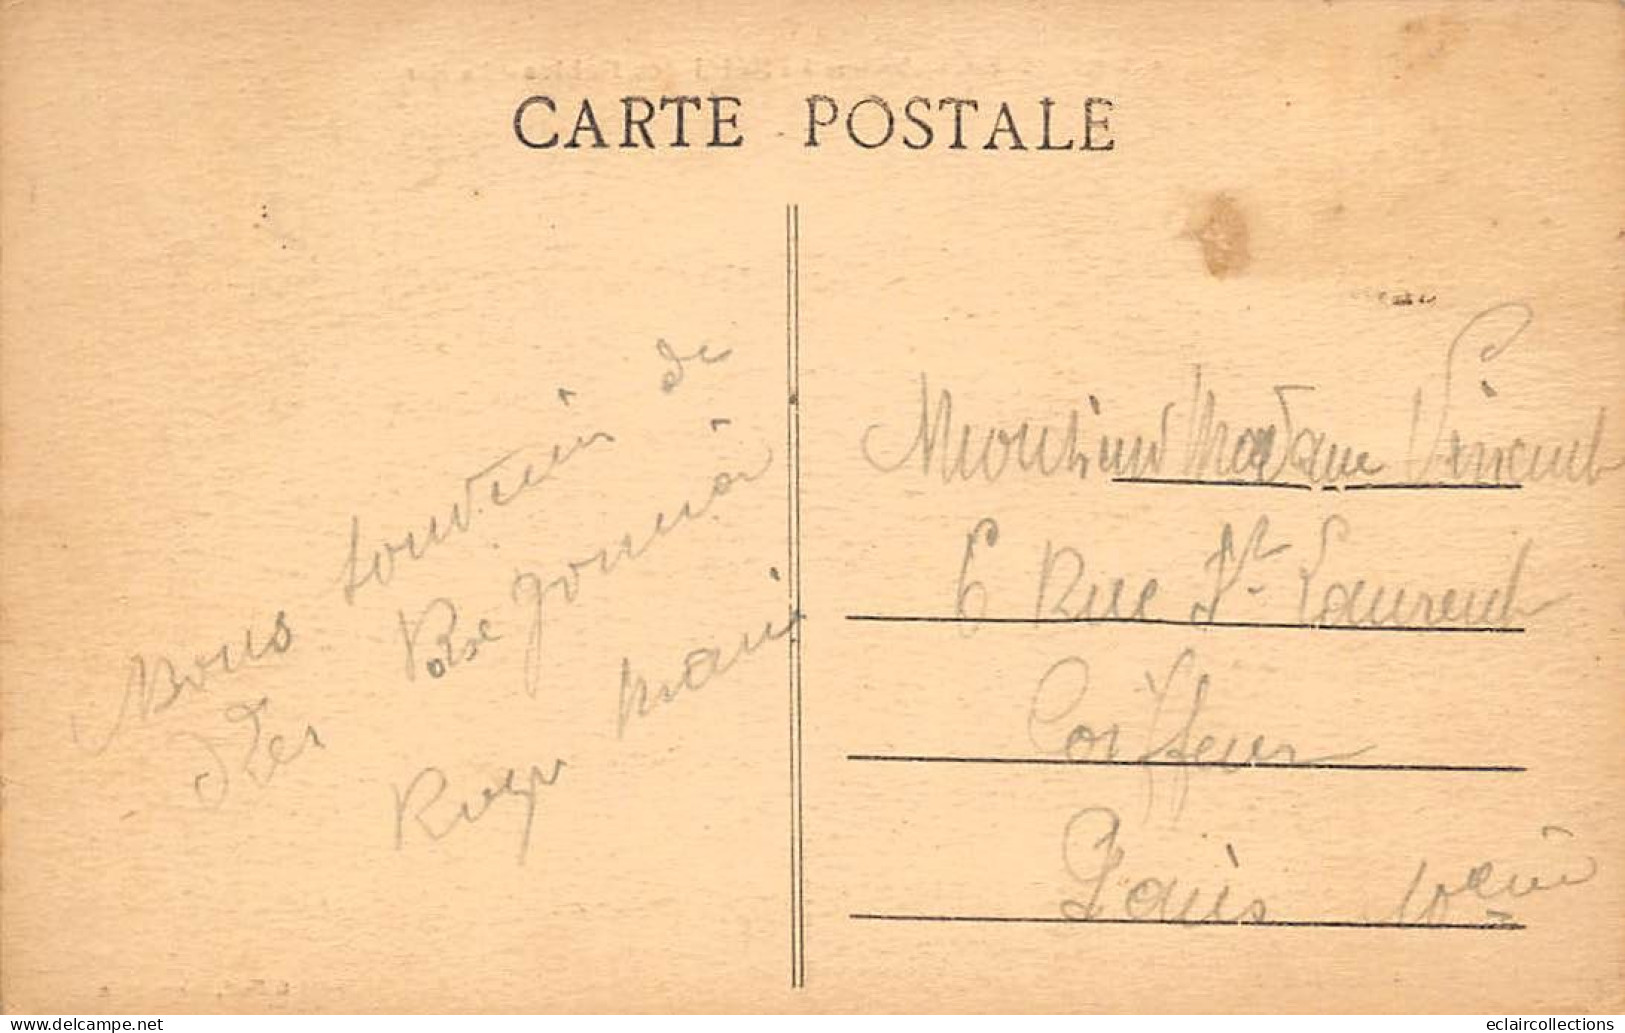 CARTE POSTALE
Bons souvenir de
des
Roger Marie
Monsieur Madame Vincent
6 Rue St. Laurent
Coiffeur
Paris 10ème
delcampe.net
eclaircollections